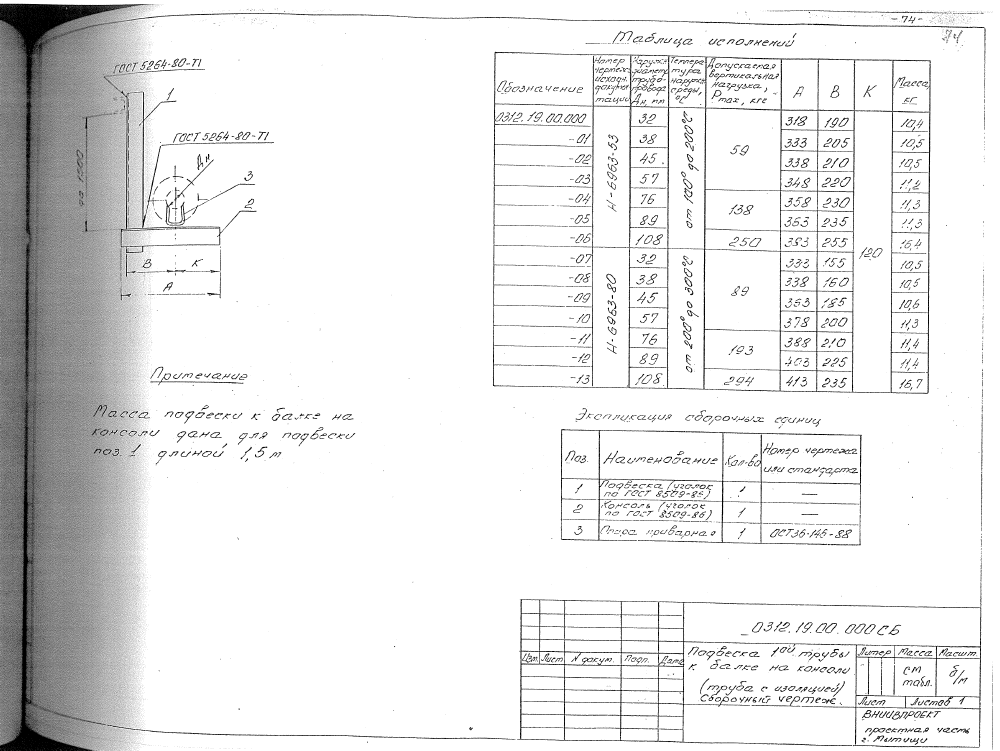 - 74 -
74
ГОСТ 5264-80-Т1
1
ГОСТ 5264-80-Т1
Дн
3
2
до 1500
В К
А
Примечание
Масса подвески к балке на
консоли дана для подвески
поз. 1 длиной 1,5 м
Таблица исполнений
Обозначение
Номер чертежа исходн. докумен-тации
Наружн. диаметр трубо-провода Дн, мм
Темпера тура наружн. среды, °С
Допускаемая вертикальная нагрузка, Pmax, кгс
А В К Масса, кг
0312.19.00.000 32 318 190 10,4
-01 38 333 205 10,5
-02 45 338 210 10,5
-03 57 348 220 11,2
-04 76 358 230 11,3
-05 89 363 235 11,3
-06 108 250 383 255 16,4
-07 32 333 155 10,5
-08 38 338 160 10,5
-09 45 363 185 10,6
-10 57 378 200 11,3
-11 76 388 210 11,4
-12 89 403 225 11,4
-13 108 294 413 235 16,7
Н-6963-53
Н-6963-80
от 100° до 200°С
от 200° до 300°С
59
138
89
193
120
Экспликация сборочных единиц
Поз. Наименование Кол-во Номер чертежа или стандарта
1 Подвеска (уголок по ГОСТ 8509-86) 1 —
2 Консоль (уголок по ГОСТ 8509-86) 1 —
3 Опора приварная 1 ОСТ36-146-88
0312.19.00.000 СБ
Изм. Лист N докум. Подп. Дата
Подвеска 1ой трубы
к балке на консоли
(труба с изоляцией)
Сборочный чертеж.
Литер Масса Масшт.
см табл. б/м
Лист Листов 1
ВНИИЗПРОЕКТ
проектная часть
г. Мытищи